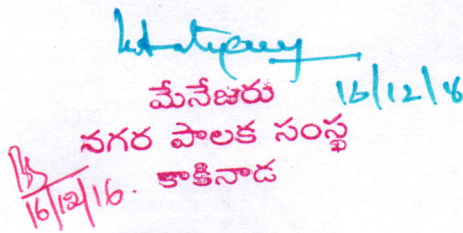 మేనేజరు
16/12/16
నగర పాలక సంస్థ
కాకినాడ
16/12/16.